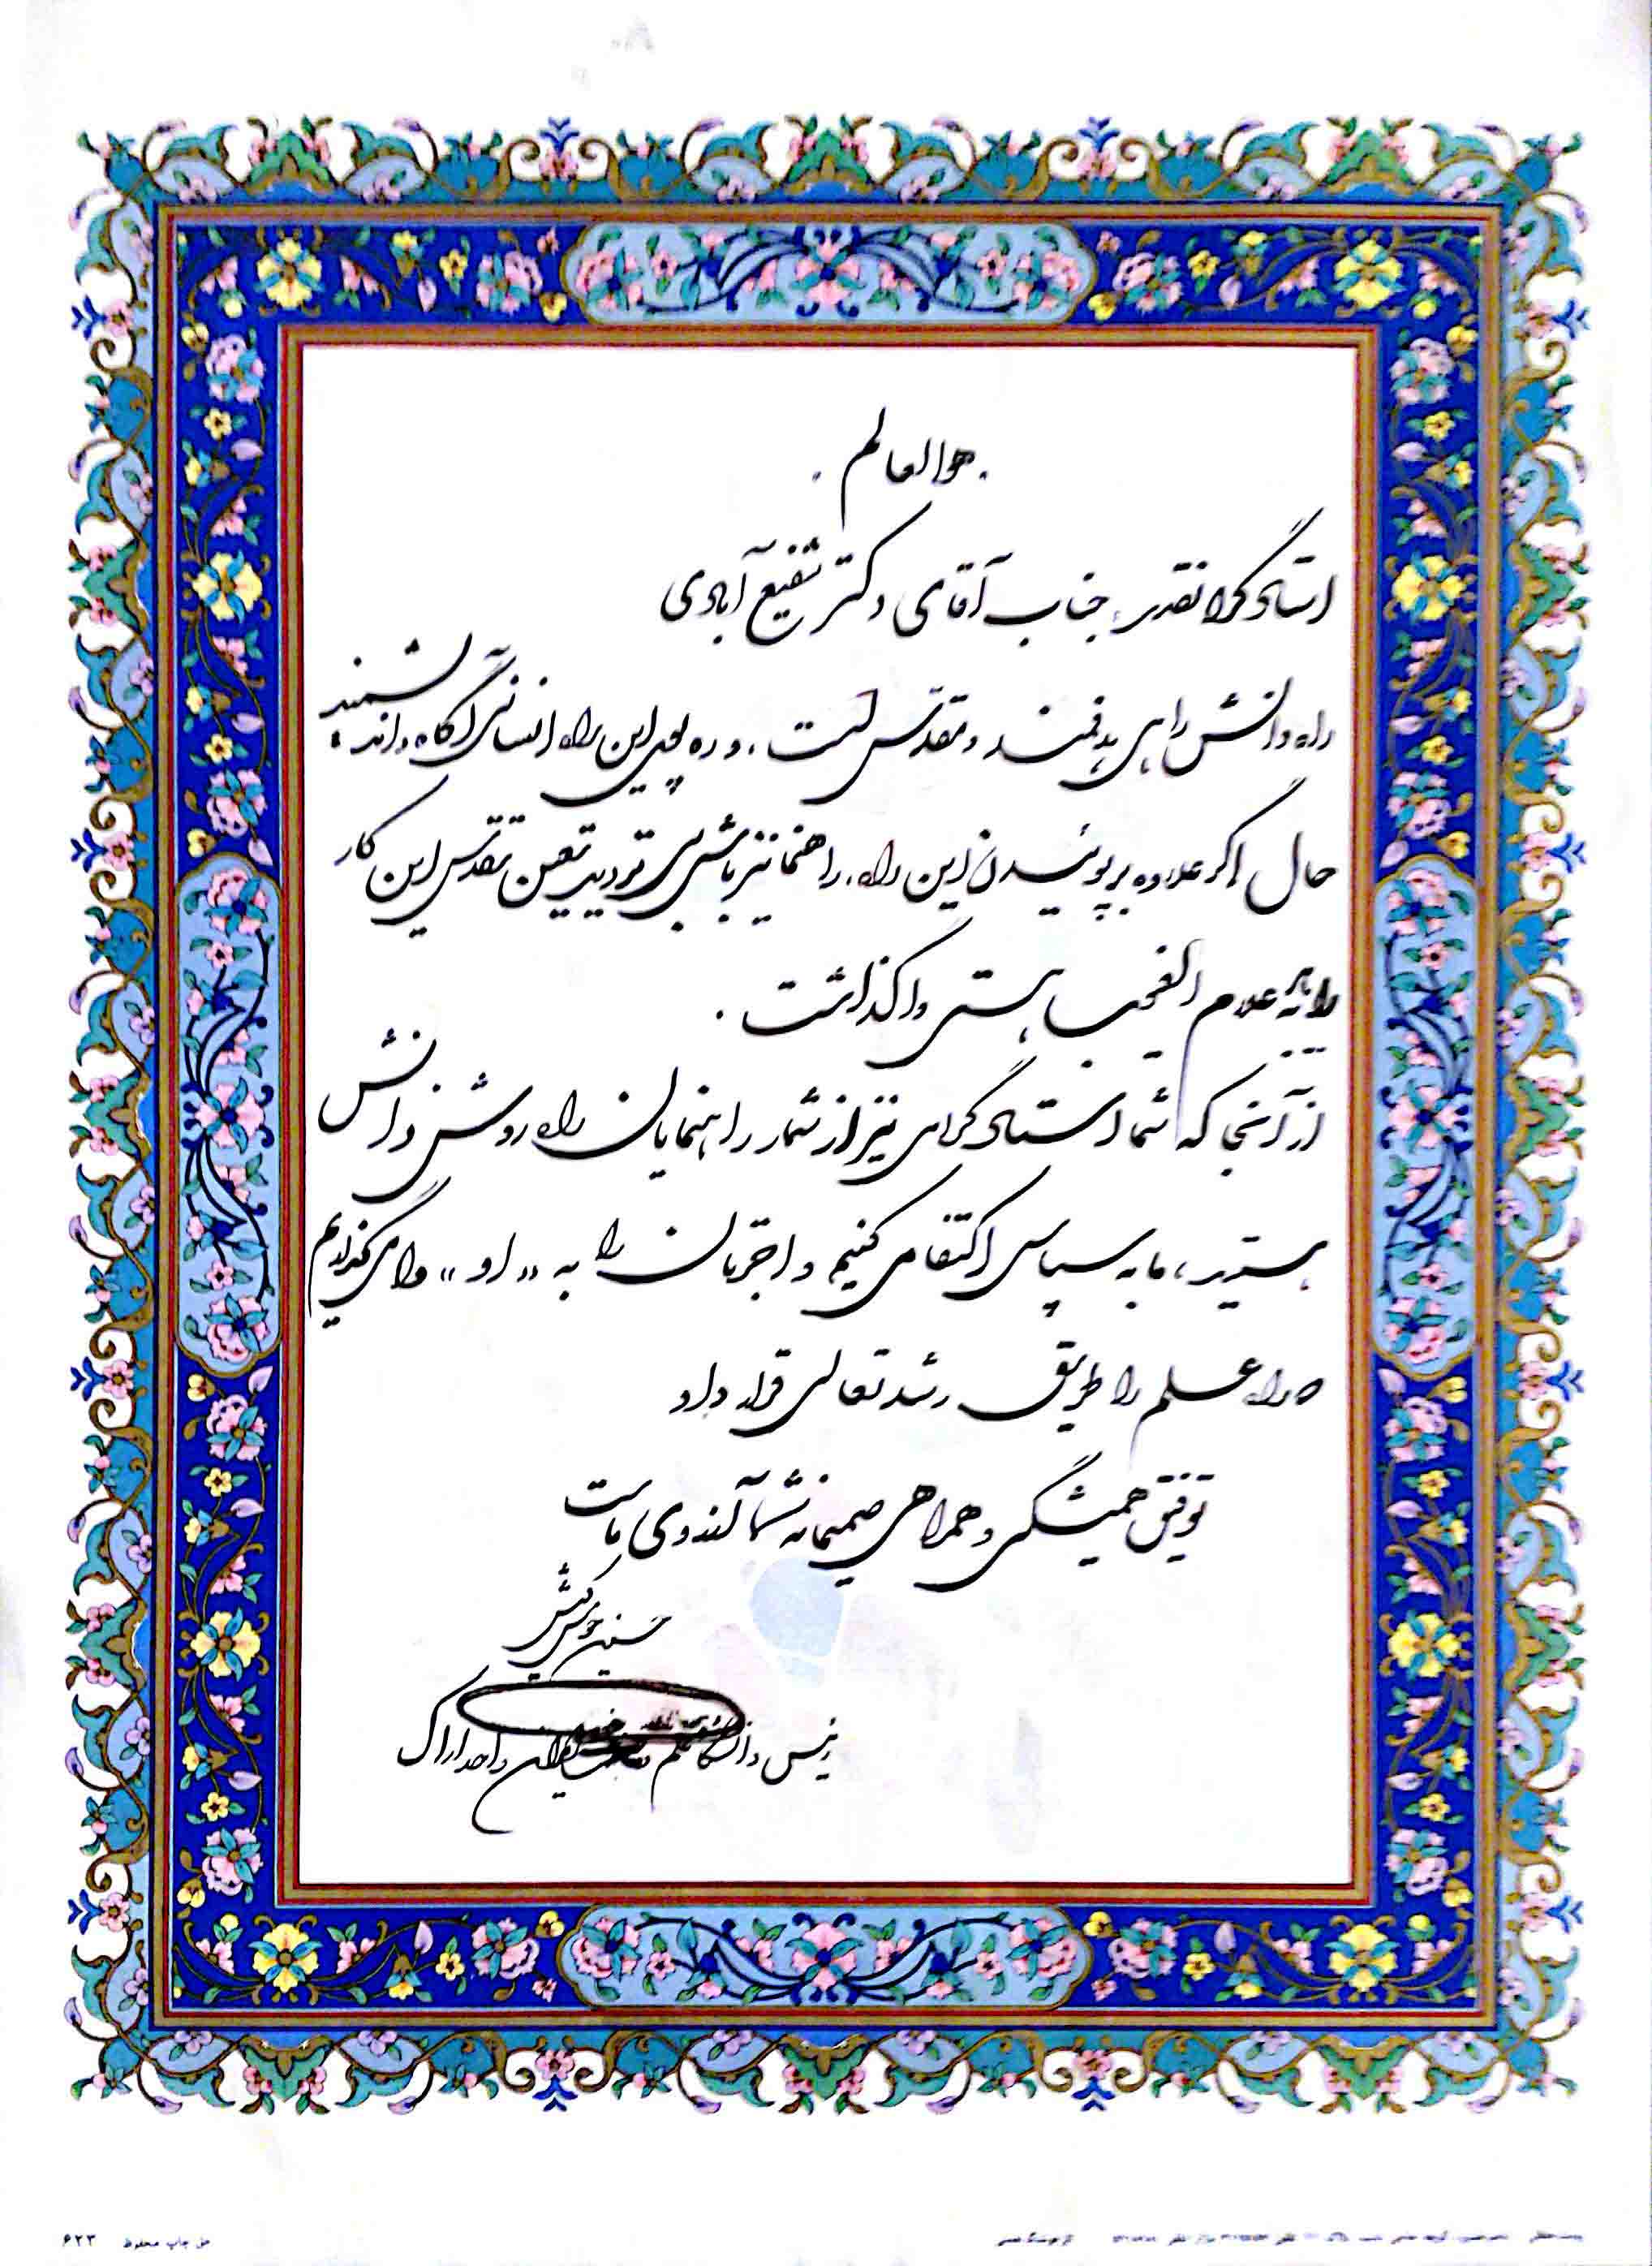 هوالعالم
استاد گرانقدر، جناب آقای دکتر شفیع آبادی
راه دانش راهی هدفمند و مقدس است، و ره پوی این راه انسانی آگاه و اندیشمند
حال اگر علاوه بر پوئیدن این راه، راهنما نیز باشی بی تردید تعیین تقدس این کار
را به علام الغیب هستی واگذاشت.
از آنجا که شما استاد گرامی نیز از شمار راهنمایان راه روشن دانش
هستید، ما به سپاسی اکتفا می کنیم و اجرتان را به «او» وا می گذاریم
راه علم را طریق رشد تعالی قرار داد
توفیق همیشگی و همراهی صمیمانه شما آرزوی ماست
حسین
رئیس دانشگاه علم واحد اراک
حق چاپ محفوظ ۶۲۳